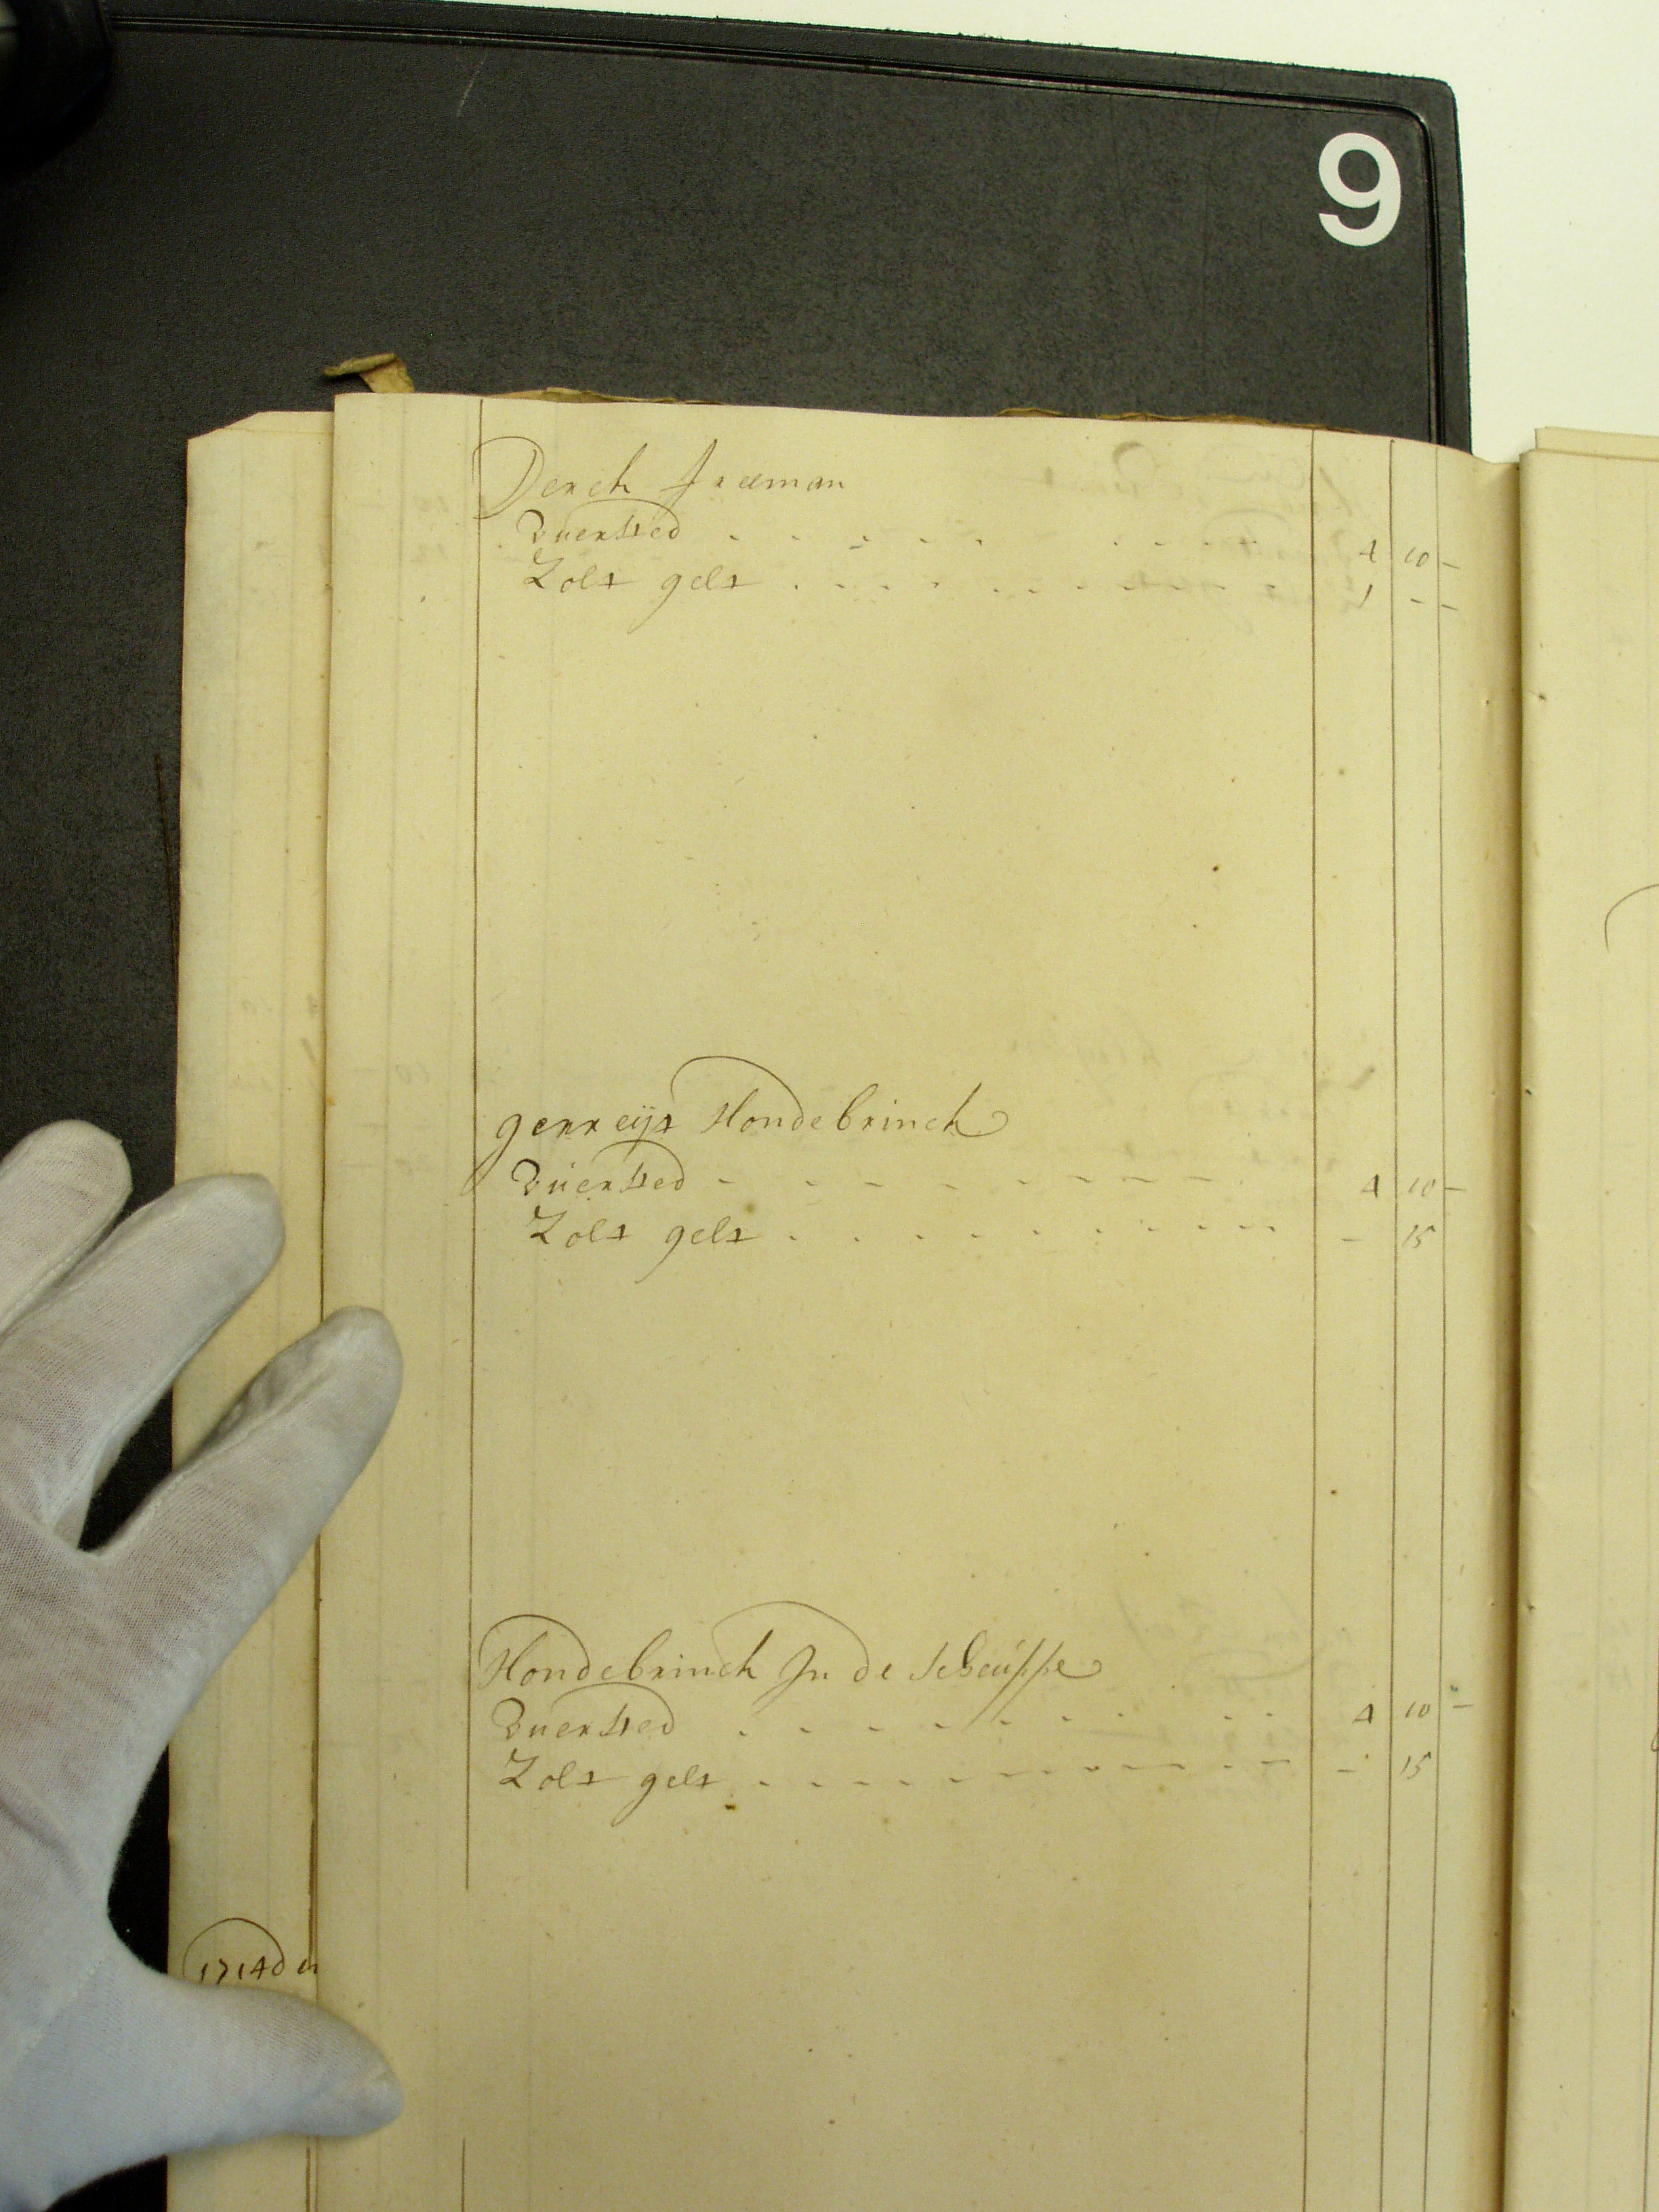 9
Derck freeman
Vuersted - - - - - - - - 4 10 -
Zolt gelt - - - - - - - - 1 - -
gerreijt Hondebrinck
Vuersted - - - - - - - - 4 10 -
Zolt gelt - - - - - - - - - 15
Hondebrinck In de Scheuppe
Vuersted - - - - - - - - 4 10 -
Zolt gelt - - - - - - - - - 15
1714 den